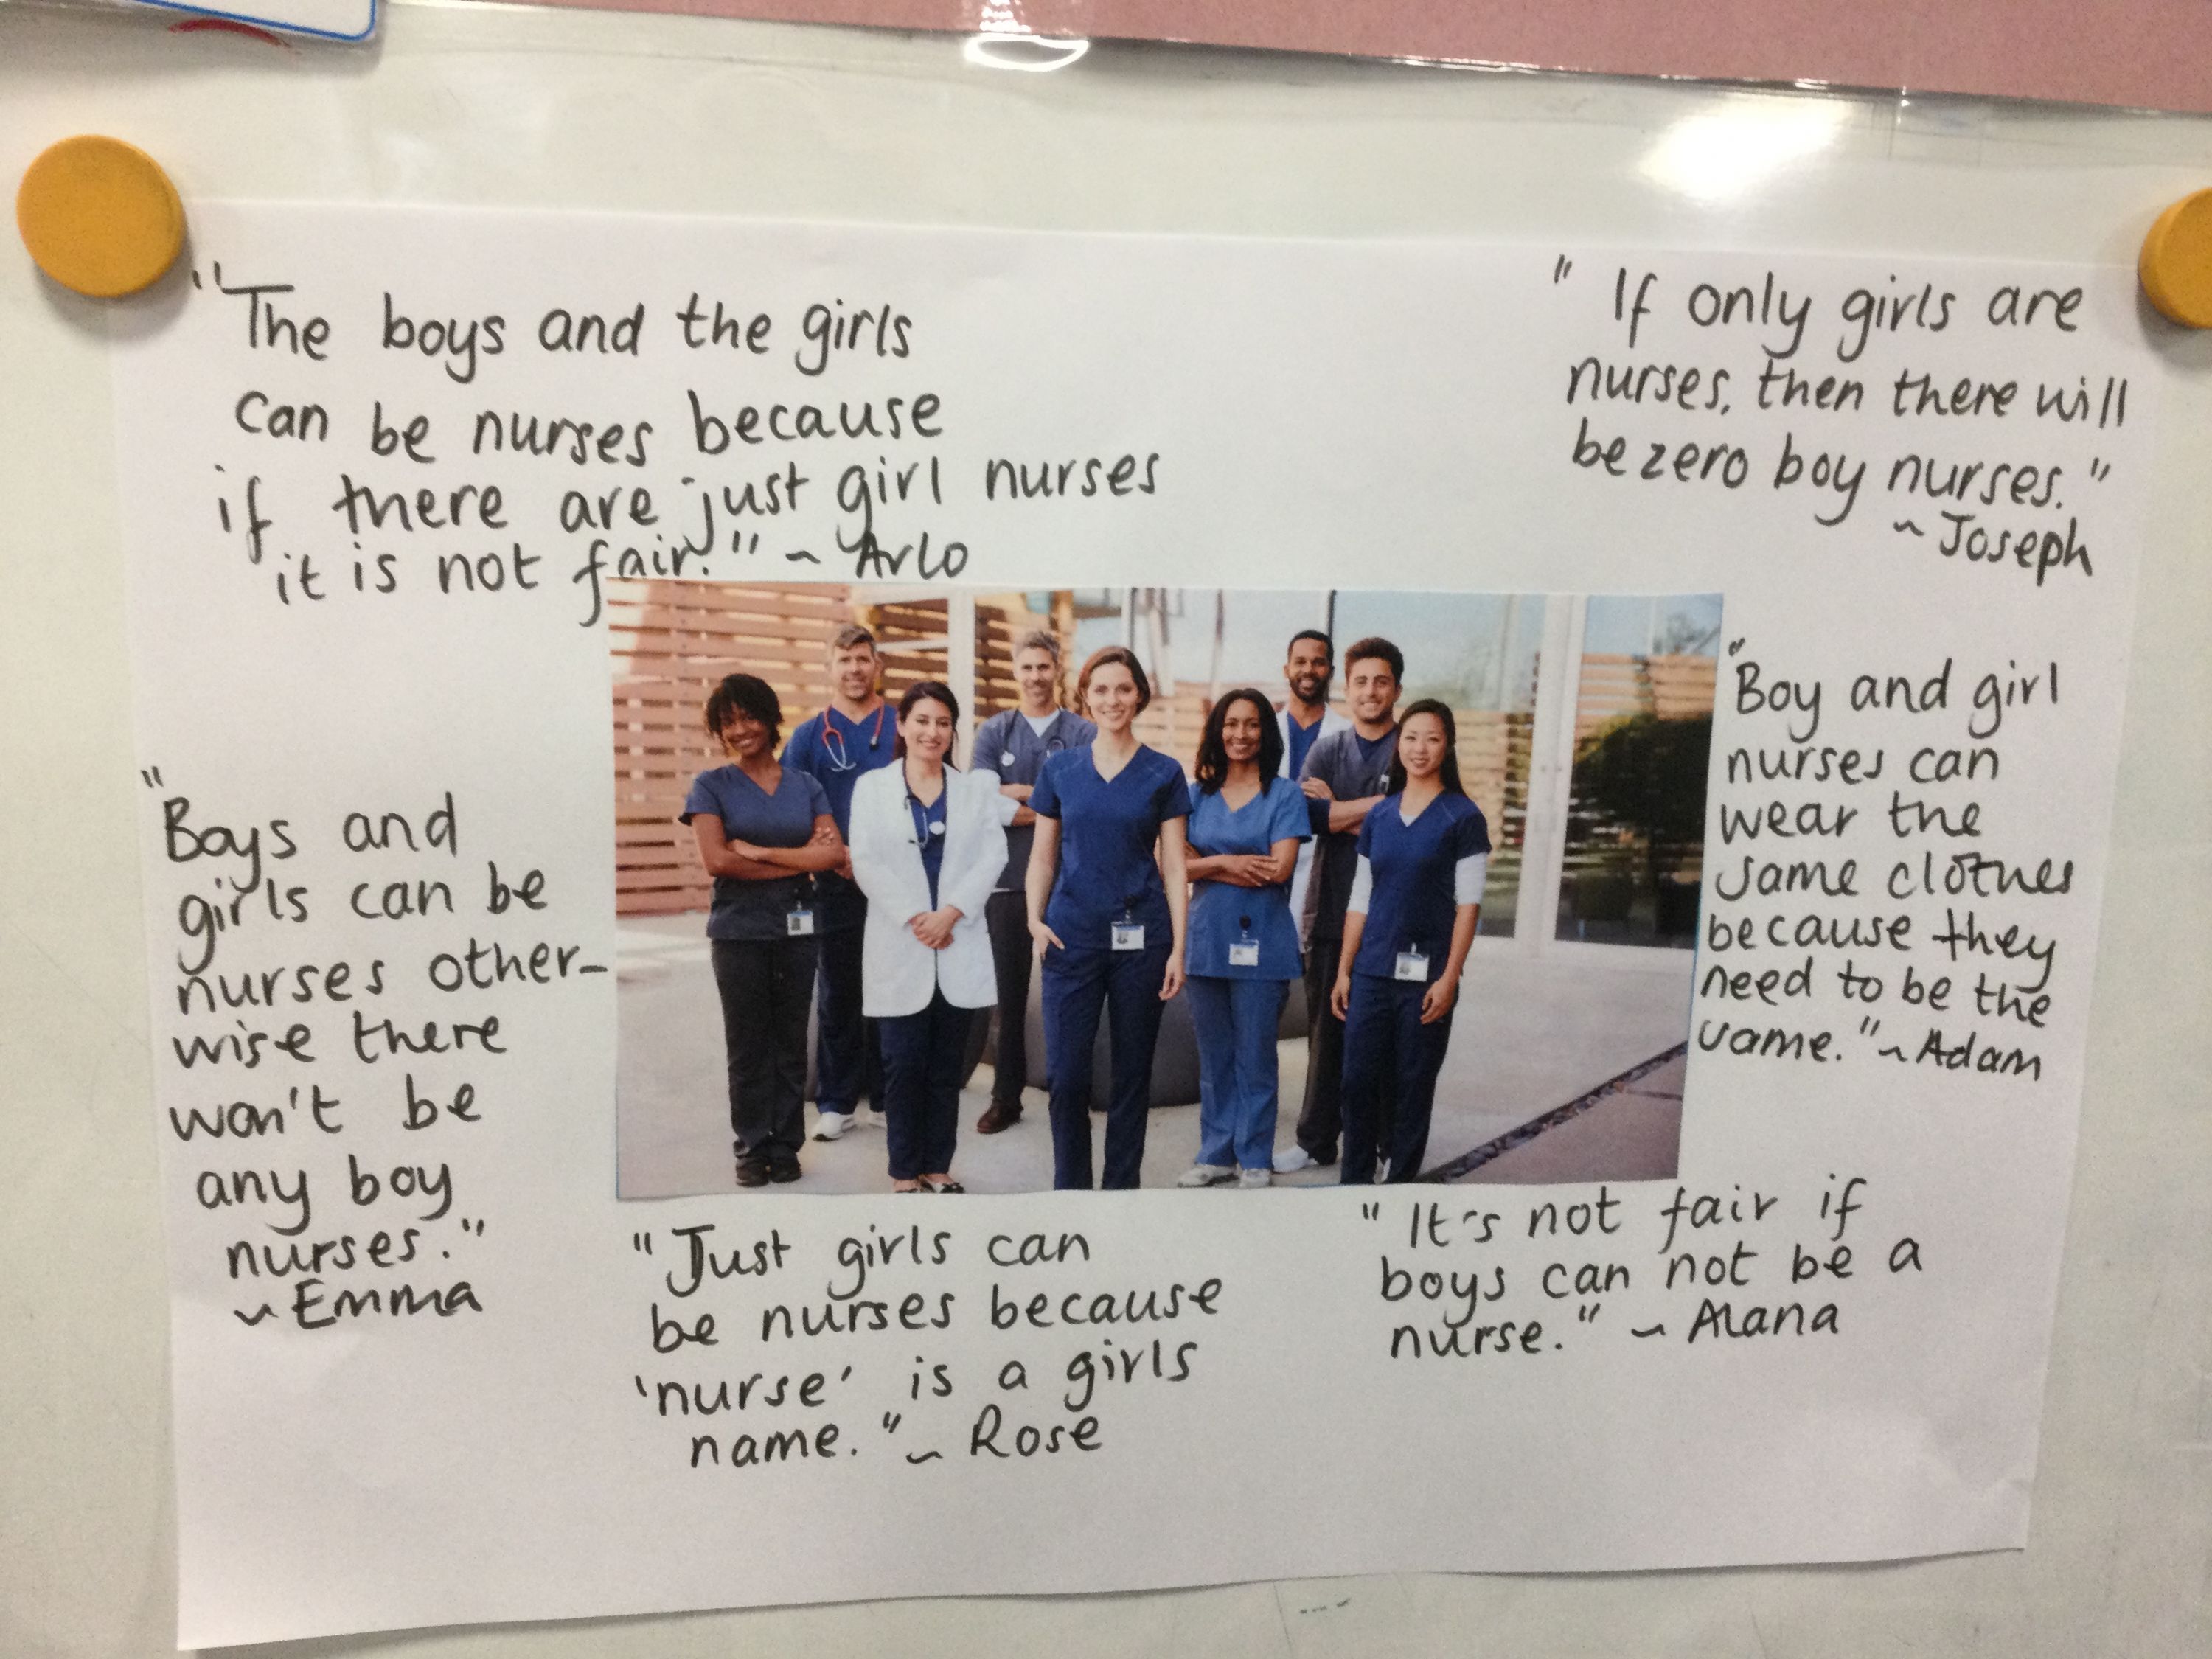 "The boys and the girls
can be nurses because
if there are just girl nurses
it is not fair." ~ Arlo
" If only girls are
nurses, then there will
be zero boy nurses."
~ Joseph
"Boy and girl
nurses can
wear the
same clothes
because they
need to be the
same." ~ Adam
"Boys and
girls can be
nurses other-
wise there
won't be
any boy
nurses."
~ Emma
"Just girls can
be nurses because
'nurse' is a girls
name." ~ Rose
"It's not fair if
boys can not be a
nurse." ~ Alana